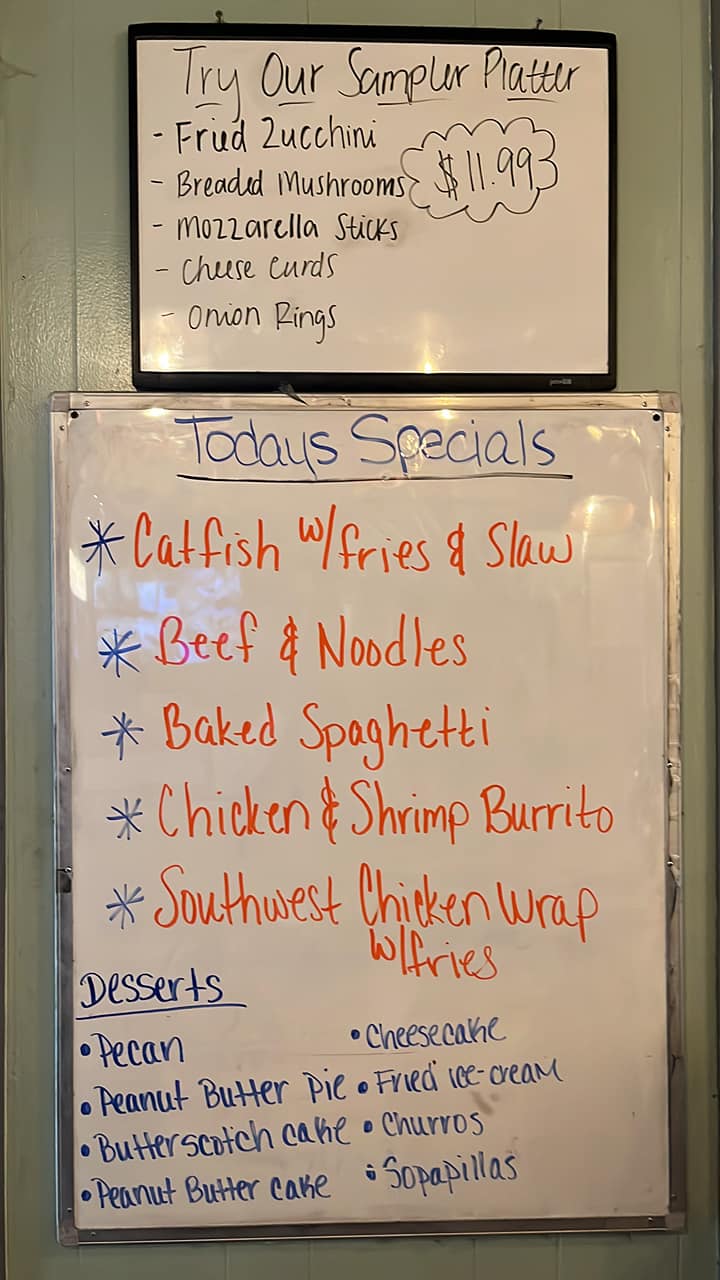 Try Our Sampler Platter
- Fried Zucchini
$11.99
- Breaded Mushrooms
- Mozzarella Sticks
- Cheese Curds
- Onion Rings
Todays Specials
* Catfish w/fries & Slaw
* Beef & Noodles
* Baked Spaghetti
* Chicken & Shrimp Burrito
* Southwest Chicken Wrap
w/fries
Desserts
• Pecan
• Peanut Butter Pie
• Butterscotch cake
• Peanut Butter cake
• Cheesecake
• Fried ice-cream
• Churros
• Sopapillas